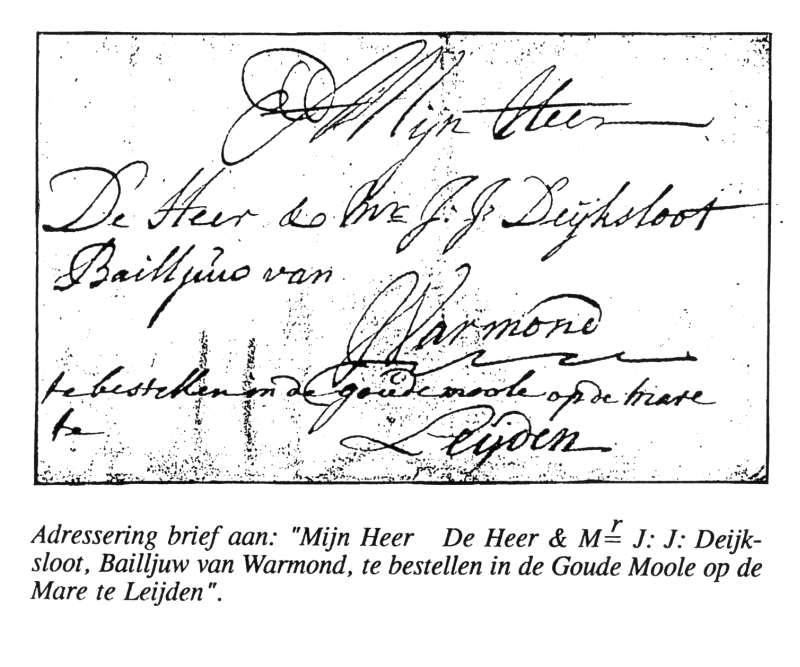 Mijn Heer
De Heer & Mr J: J: Deijksloot
Bailljuw van
Warmond
te bestellen in de goude moole op de mare
te
Leijden
Adressering brief aan: "Mijn Heer De Heer & Mr J: J: Deijk-
sloot, Bailljuw van Warmond, te bestellen in de Goude Moole op de
Mare te Leijden".